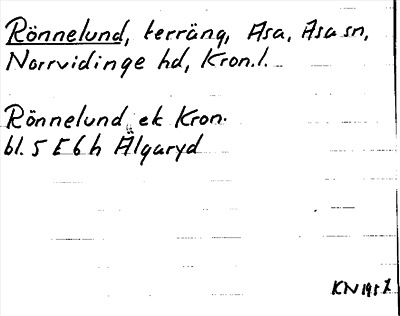 Rönnelund, terräng, Asa, Asa sn,
Norrvidinge hd, Kron.l.
Rönnelund ek Kron.
bl. 5 E 6 h Älgaryd
KN 1957